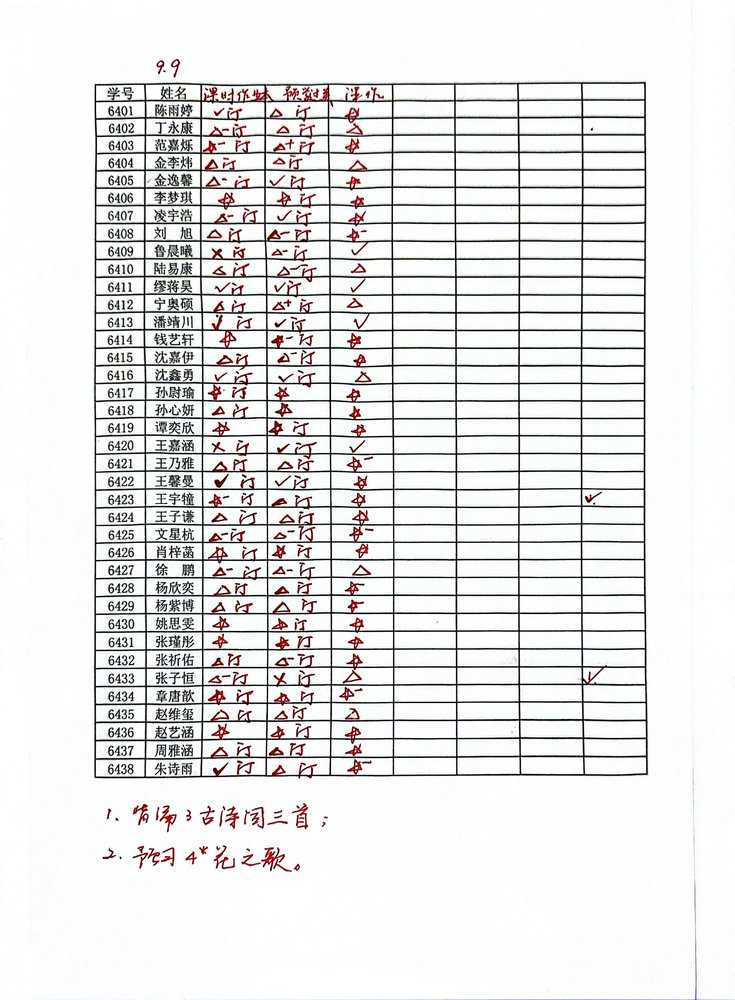 9.9
学号 姓名 课时作业本 预 课作
6401 陈雨婷 ✓订 △ 订 ☆
6402 丁永康 △- 订 △ 订 △
6403 范嘉烁 ☆- 订 △+ 订 ☆
6404 金李炜 △ 订 △ 订 △
6405 金逸馨 △- 订 ✓ 订 ☆
6406 李梦琪 ☆ ☆ 订 ☆
6407 凌宇浩 △- 订 ✓ 订 ☆
6408 刘旭 △ 订 △- 订 ☆-
6409 鲁晨曦 × 订 △- 订 ✓
6410 陆易康 △ 订 △- 订 △
6411 缪蒋昊 ✓ 订 ✓ 订 ✓
6412 宁奥硕 △ 订 △+ 订 △
6413 潘靖川 ✓ 订 ✓ 订 ✓
6414 钱艺轩 ☆ ☆- 订 ☆
6415 沈嘉伊 △ 订 △- 订 ☆
6416 沈鑫勇 ✓ 订 ✓ 订 △
6417 孙尉瑜 ☆ 订 ☆ ☆
6418 孙心妍 △ 订 ☆ ☆
6419 谭奕欣 ☆ ☆ 订 ☆
6420 王嘉涵 × 订 ✓ 订 ✓
6421 王乃雅 △ 订 △ 订 ☆-
6422 王馨曼 ✓ 订 ✓ 订 ☆
6423 王宇犝 ☆- 订 △ 订 ☆ ✓
6424 王子谦 △ 订 △ 订 ☆
6425 文星杭 △- 订 △- 订 ☆-
6426 肖梓菡 ☆ 订 ☆ 订 ☆
6427 徐鹏 △- 订 △- 订 △
6428 杨欣奕 △ 订 △ 订 ☆-
6429 杨紫博 △ 订 △ 订 ☆-
6430 姚思雯 ☆ ☆ 订 ☆
6431 张瑾彤 ☆ ☆ 订 ☆
6432 张祈佑 △ 订 △- 订 ☆
6433 张子恒 △- 订 × 订 △ ✓
6434 章唐歆 ☆ 订 ☆ 订 ☆-
6435 赵维玺 △ 订 △ 订 △
6436 赵艺涵 ☆ ☆ 订 ☆
6437 周雅涵 △ 订 △ 订 ☆
6438 朱诗雨 ✓ 订 △ 订 ☆-
1、背诵3古诗词三首；
2、预习4*花之歌。